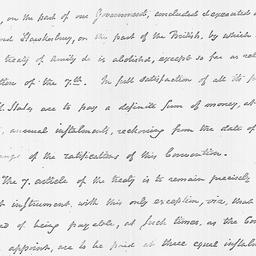 , on the part of our Government, concluded & executed a
Hawkesbury, on the part of the British, by which
treaty of amity &c is abolished, except so far as relat
of the 7th. In full satisfaction of all its p
States are to pay a definite sum of money, at
annual instalments, reckoning from the date of
of the ratifications of this Convention.
The 7. article of the treaty is to remain precisely
instrument, with this only exception, viz, that
of being payable, at such times, as the Com
appoint, are to be paid at three equal instalm